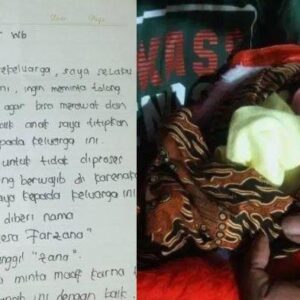 Date
Page
Wb
keluarga, saya selaku
ini, ingin meminta tolong
agar bisa merawat dan
anak saya titipkan
kepada keluarga ini.
untuk tidak diproses
berwajib di karenakan
saya kepada keluarga ini
diberi nama
Farzana"
"zana".
minta maaf karna
ini dengan baik.
KASI